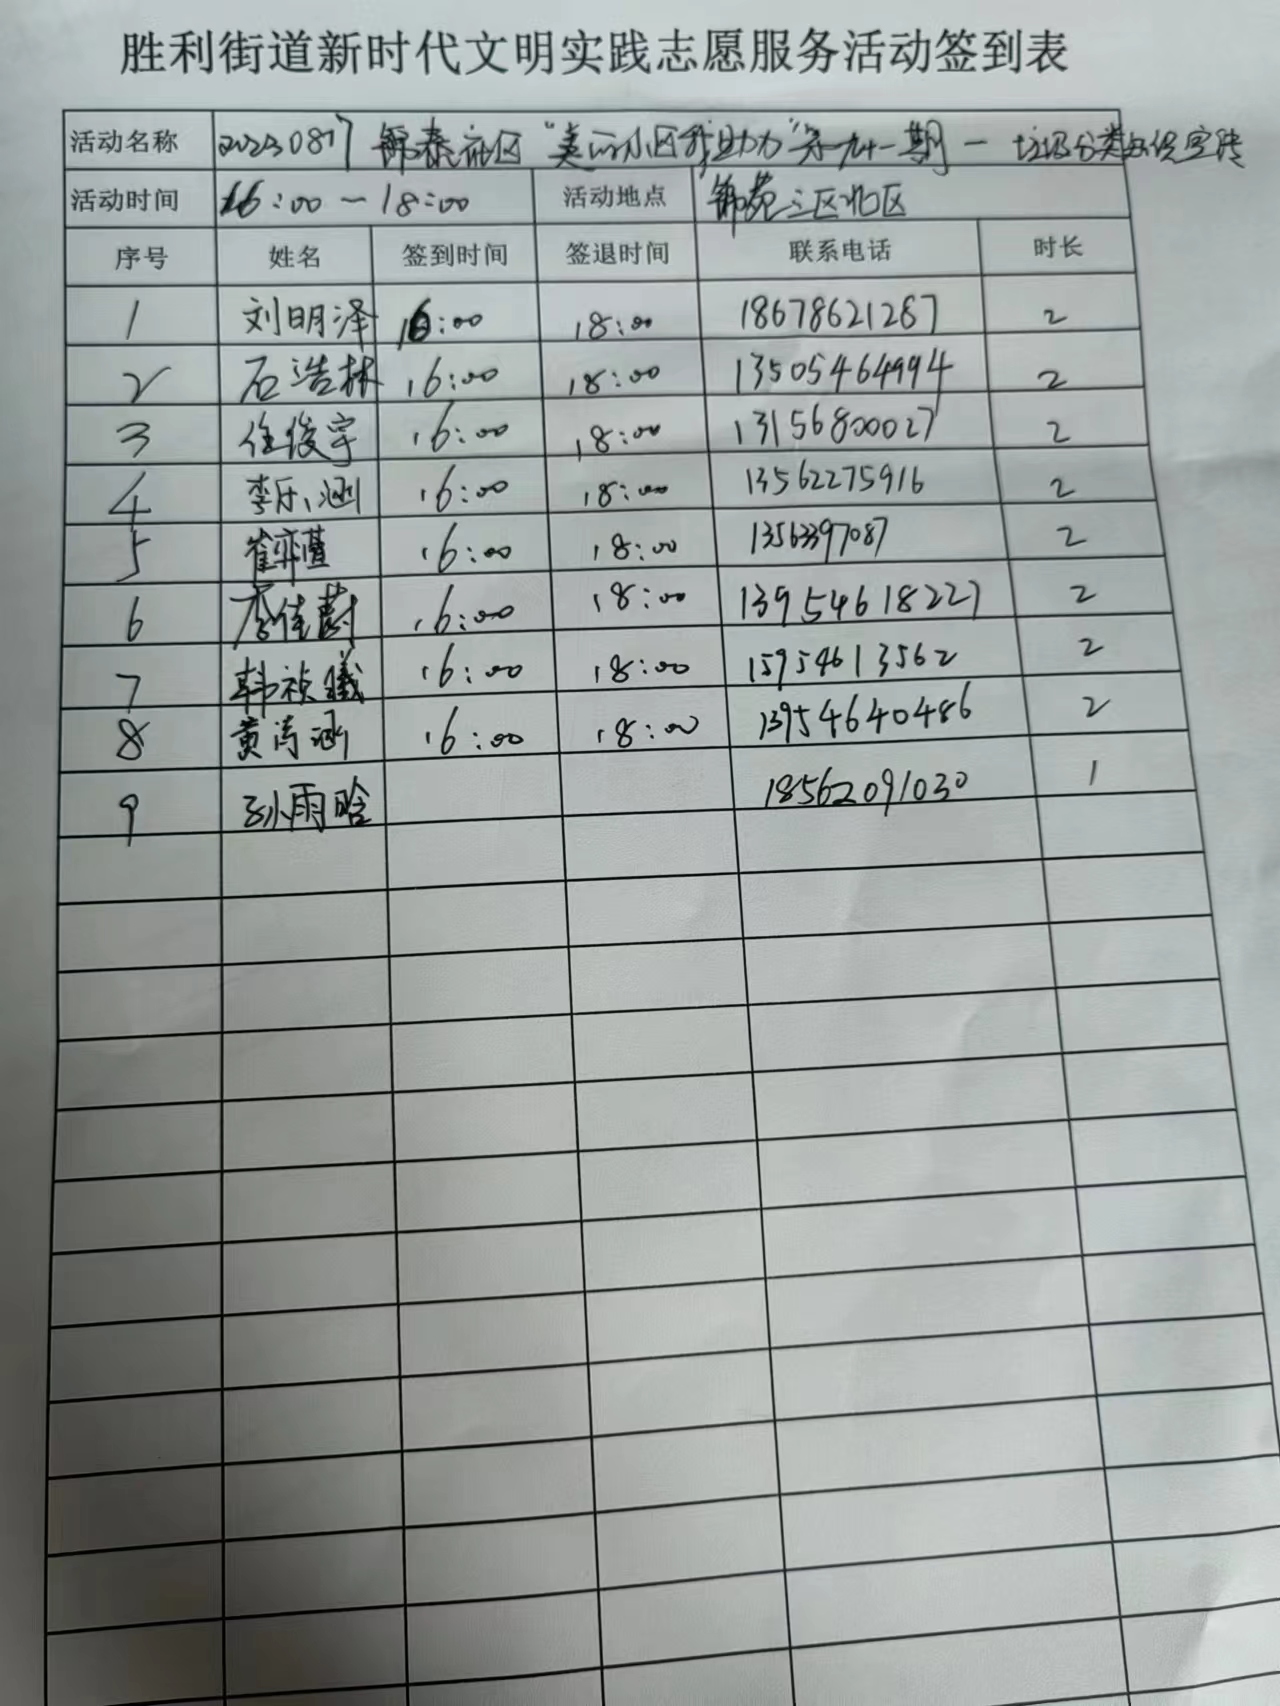 胜利街道新时代文明实践志愿服务活动签到表
活动名称 20230817 锦泰社区"美丽小区我助力"第九十一期 — 垃圾分类知识宣传
活动时间 16:00—18:00 活动地点 锦苑三区北区
序号 姓名 签到时间 签退时间 联系电话 时长
1 刘明泽 16:00 18:00 18678621287 2
2 石浩林 16:00 18:00 13505464994 2
3 任俊宇 16:00 18:00 13156800027 2
4 李乐涵 16:00 18:00 13562275916 2
5 崔弈萱 16:00 18:00 13563397087 2
6 李佳蔚 16:00 18:00 13954618227 2
7 韩祯曦 16:00 18:00 15954613562 2
8 黄涵 16:00 18:00 13954640486 2
9 孙雨晗 18562091030 1